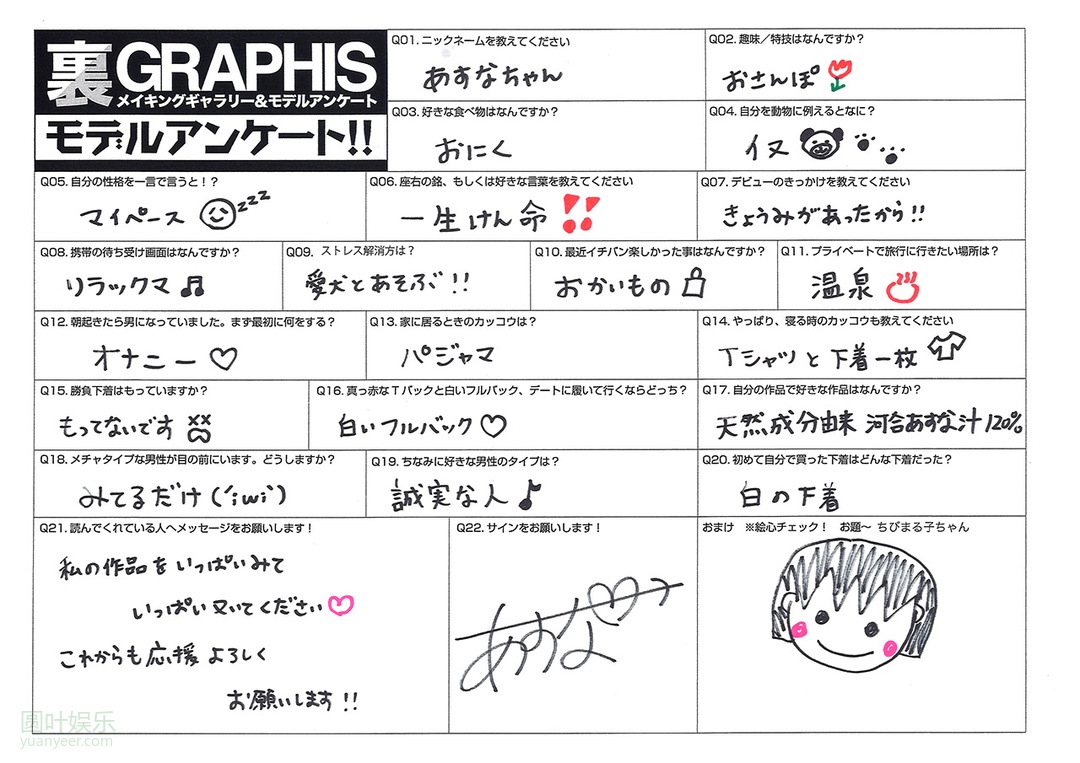 裏GRAPHIS
メイキングギャラリー&モデルアンケート
モデルアンケート!!
Q01. ニックネームを教えてください
あすなちゃん
Q02. 趣味／特技はなんですか？
おさんぽ
Q03. 好きな食べ物はなんですか？
おにく
Q04. 自分を動物に例えるとなに？
イヌ
Q05. 自分の性格を一言で言うと！？
マイペース zzz
Q06. 座右の銘、もしくは好きな言葉を教えてください
一生けん命!!
Q07. デビューのきっかけを教えてください
きょうみがあったから!!
Q08. 携帯の待ち受け画面はなんですか？
リラックマ♫
Q09. ストレス解消方は？
愛犬とあそぶ!!
Q10. 最近イチバン楽しかった事はなんですか？
おかいもの
Q11. プライベートで旅行に行きたい場所は？
温泉♨
Q12. 朝起きたら男になっていました。まず最初に何をする？
オナニー♡
Q13. 家に居るときのカッコウは？
パジャマ
Q14. やっぱり、寝る時のカッコウも教えてください
Tシャツと下着一枚
Q15. 勝負下着はもっていますか？
もってないです
Q16. 真っ赤なTバックと白いフルバック、デートに履いて行くならどっち？
白いフルバック♡
Q17. 自分の作品で好きな作品はなんですか？
天然成分由来 河合あすな汁120%
Q18. メチャタイプな男性が目の前にいます。どうしますか？
みてるだけ(´;ω;`)
Q19. ちなみに好きな男性のタイプは？
誠実な人♪
Q20. 初めて自分で買った下着はどんな下着だった？
白の下着
Q21. 読んでくれている人へメッセージをお願いします！
私の作品をいっぱいみて
いっぱいヌいてください♡
これからも応援よろしく
お願いします!!
Q22. サインをお願いします！
あすな
おまけ ※絵心チェック！ お題〜ちびまる子ちゃん
圆叶娱乐
yuanyeer.com